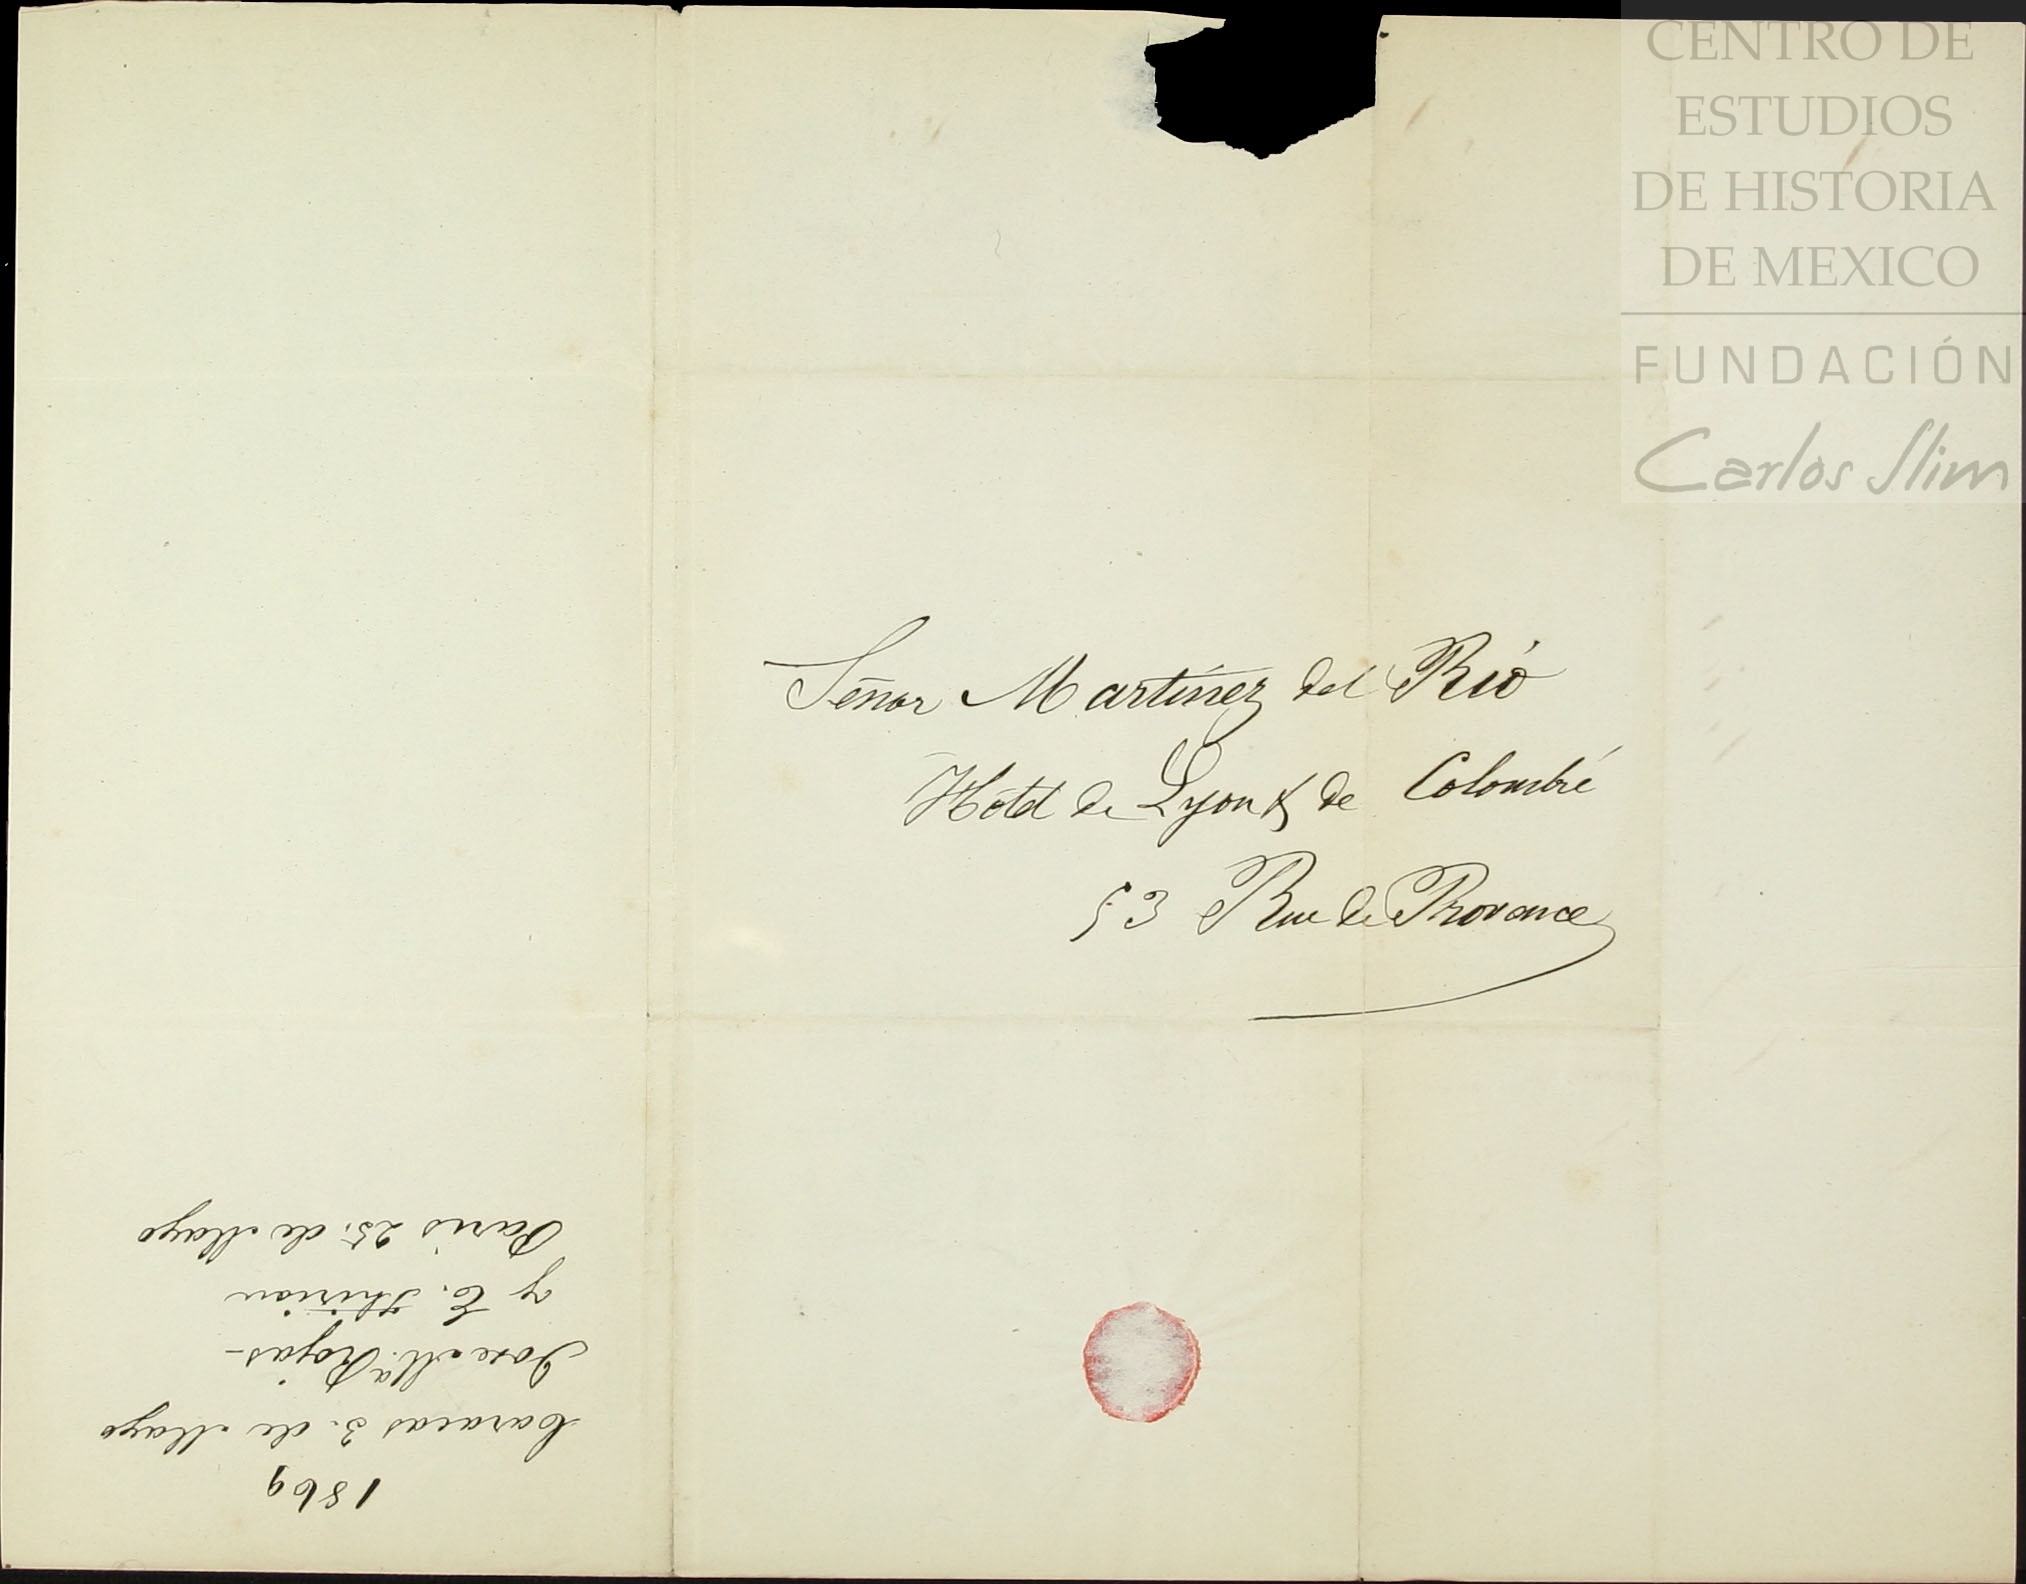 CENTRO DE
ESTUDIOS
DE HISTORIA
DE MEXICO
FUNDACIÓN
Carlos Slim
Señor Martinez del Rió
Hotel de Lyon & de Colombié
53 Rue de Provence
1869
Caracas 3. de Mayo
Jose Mª Rojas-
y E. Thirion
Paris 25. de Mayo